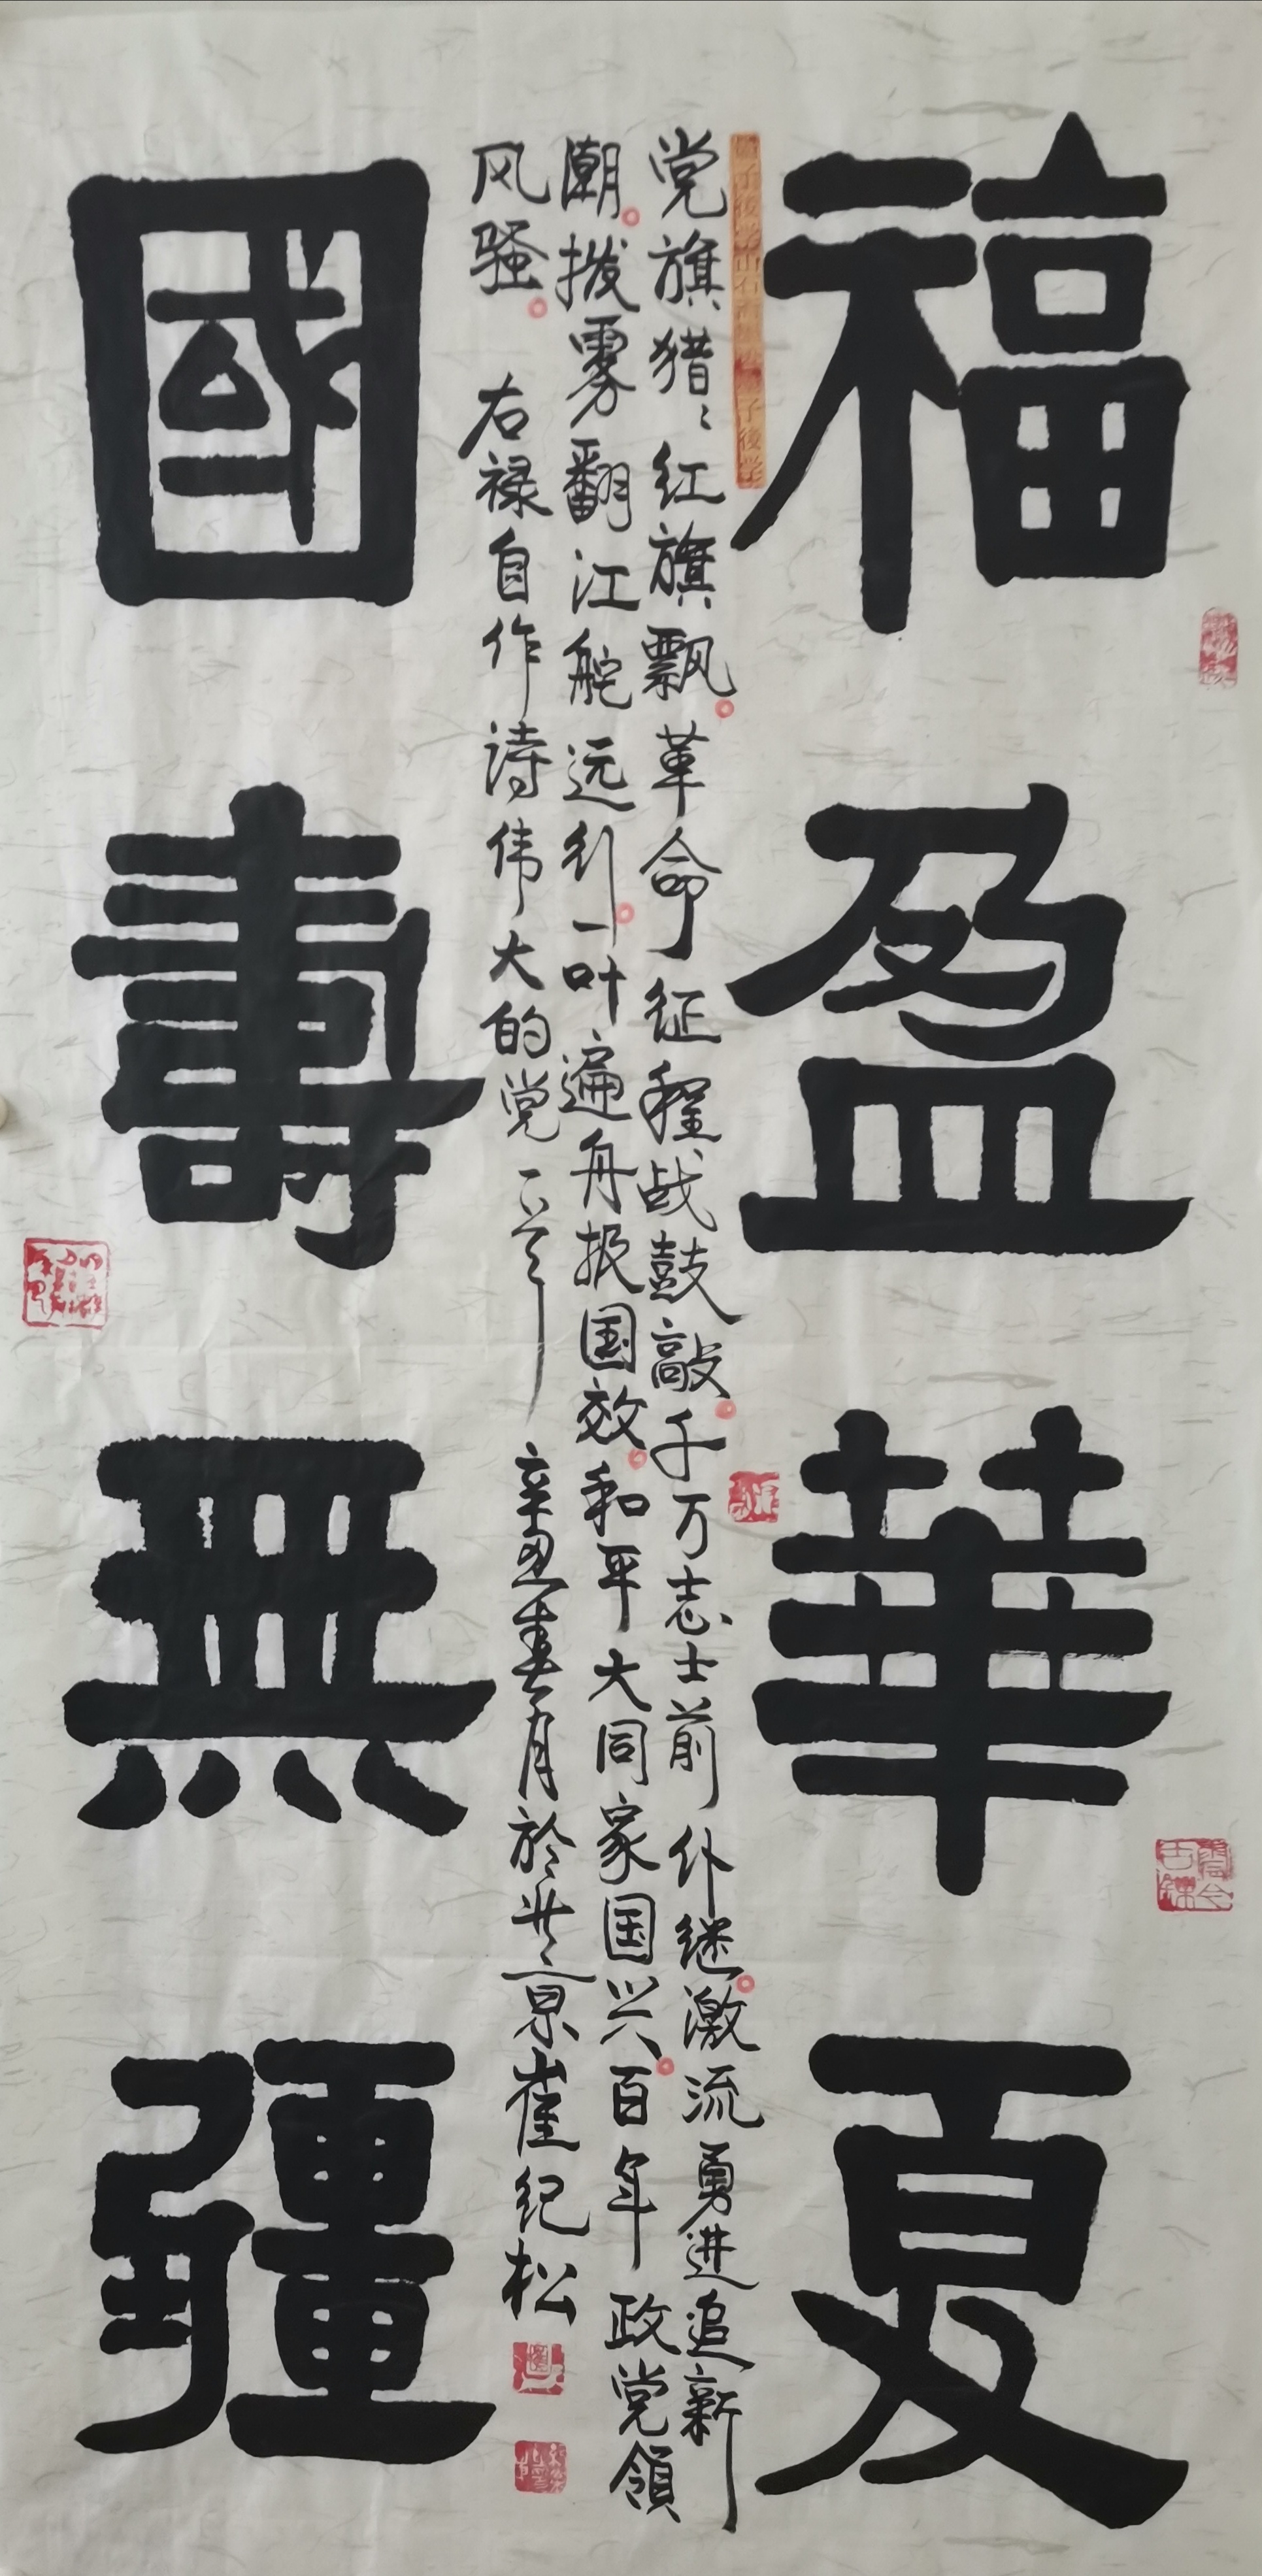 福盈華夏
党旗猎々红旗飘。革命征程战鼓敲。千万志士前仆继。激流勇进追新
潮。拨雾翻江舵远行。一叶遍舟报国效。和平大同家国兴。百年政党领
风骚。 右禄自作诗伟大的党一首 辛丑春月於北京崔纪松
國壽無疆